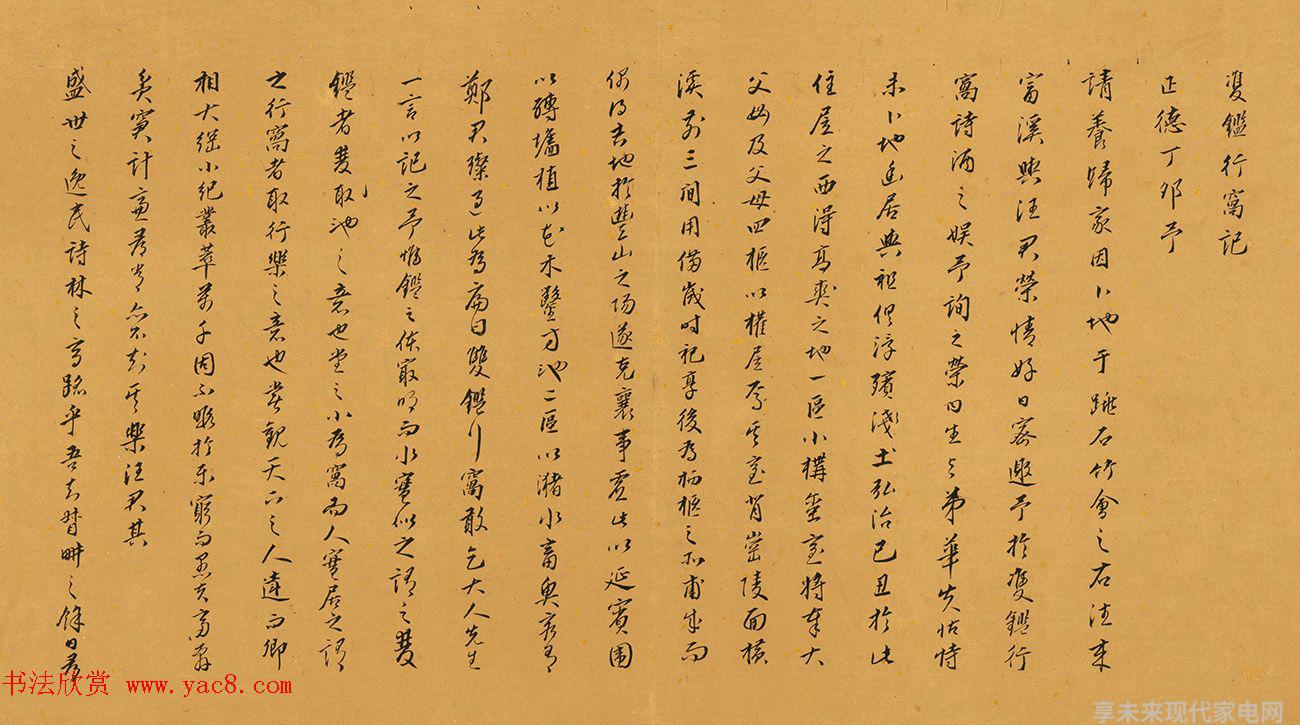 雙鑑行窩記
正德丁卯予
請養歸家因卜地于跳石竹會之右往來
富溪與汪君榮情好日密邀予於雙鑑行
窩詩酒之娛予詢之榮曰生與弟華失怙恃
未卜地幽居與祖俱浮殯淺土弘治己丑於此
住居之西得高爽之地一區小構堊室將奉大
父母及父母四柩以權厝焉其室背崇陵面橫
溪前三間用備歲時祀享後為栖柩之所甫成而
偶得吉地於豐山之陽遂克襄事虛此以延賓圍
以磚墻植以花木鑿方池二區以瀦水畜魚
鄭君瓅過此為扁曰雙鑑行窩敢乞大人先生
一言以記之予惟鑑之体最明而水實似之謂之雙
鑑者雙取池之意也堂之小為窩而人寔居之謂
之行窩者取行樂之意也嘗觀天下之人達而卿
相大繼小紀叢萃萬千因不暇於樂窮而愚夫
亦不知其樂汪君其
盛世之逸民詩林之高蹈乎吾知其畊之餘日
书法欣赏 www.yac8.com
享未来现代家电网